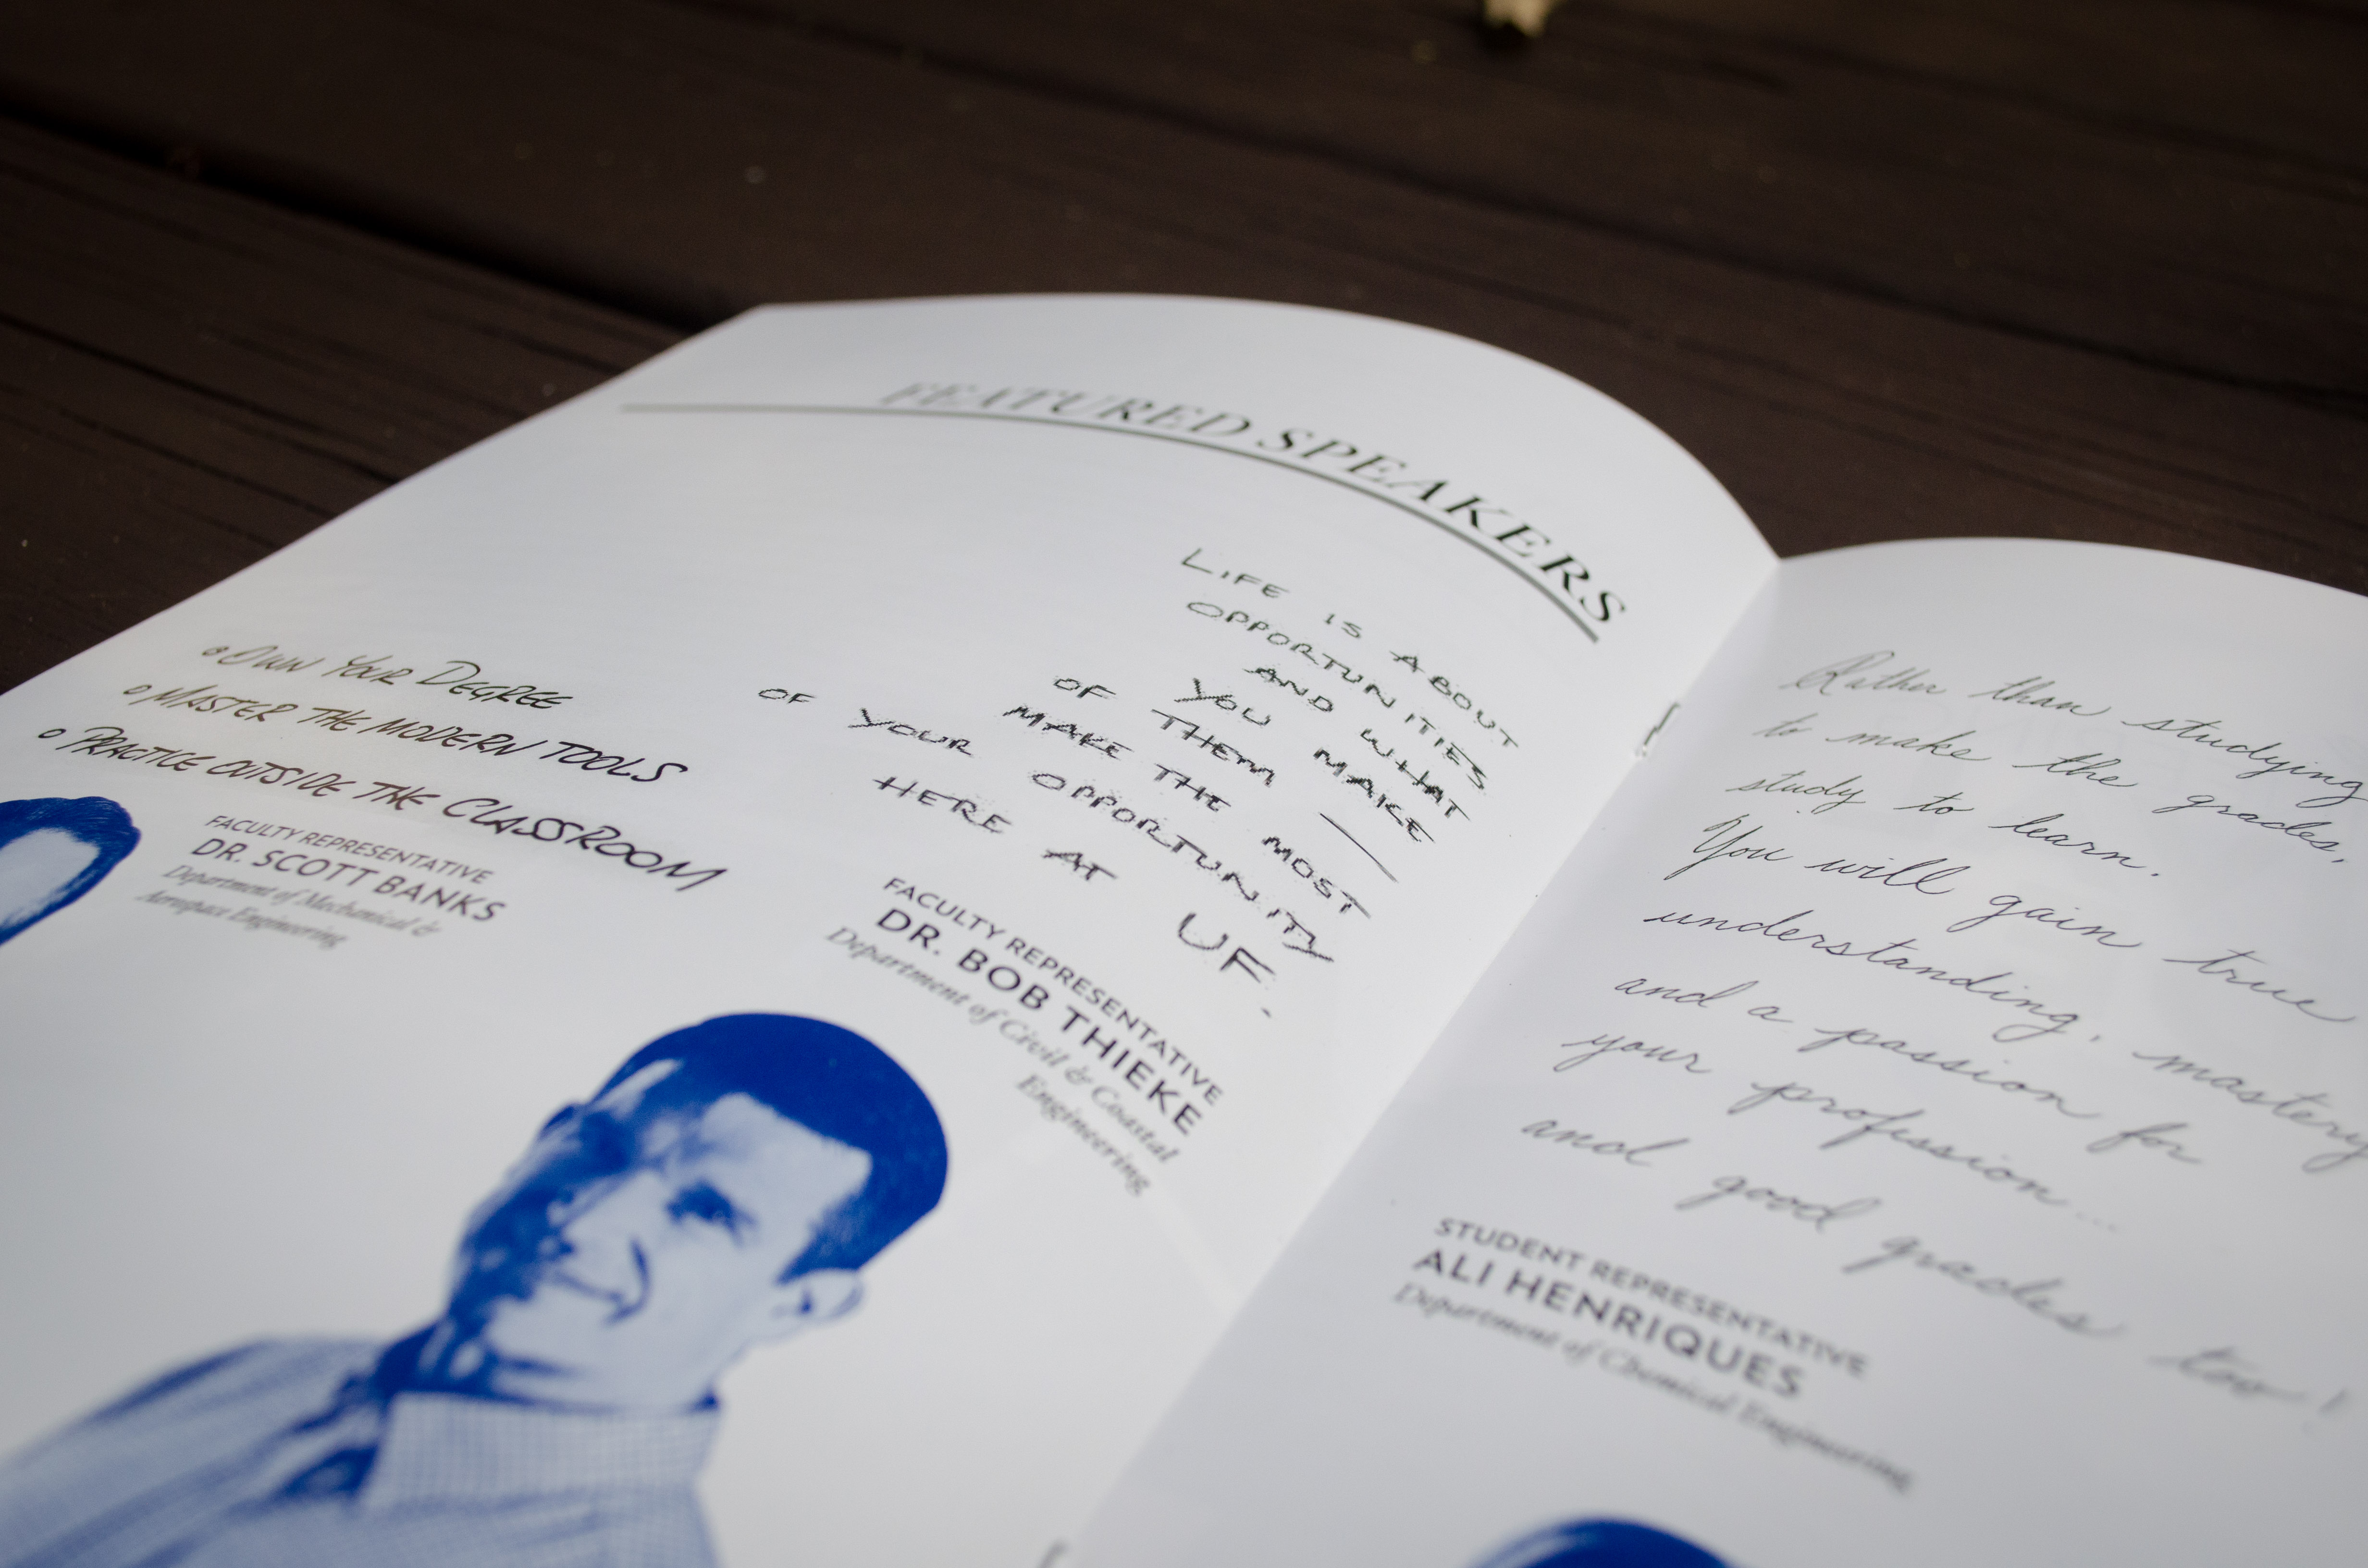 FEATURED SPEAKERS
o OWN YOUR DEGREE
o MASTER THE MODERN TOOLS
o PRACTICE OUTSIDE THE CLASSROOM
FACULTY REPRESENTATIVE
DR. SCOTT BANKS
Department of Mechanical &
Aerospace Engineering
LIFE IS ABOUT
OPPORTUNITIES
AND WHAT
YOU MAKE
OF THEM —
MAKE THE MOST
OF YOUR OPPORTUNITY
HERE AT UF.
FACULTY REPRESENTATIVE
DR. BOB THIEKE
Department of Civil & Coastal
Engineering
Rather than studying
to make the grades,
study to learn.
You will gain true
understanding, mastery
and a passion for
your profession...
and good grades too!
STUDENT REPRESENTATIVE
ALI HENRIQUES
Department of Chemical Engineering